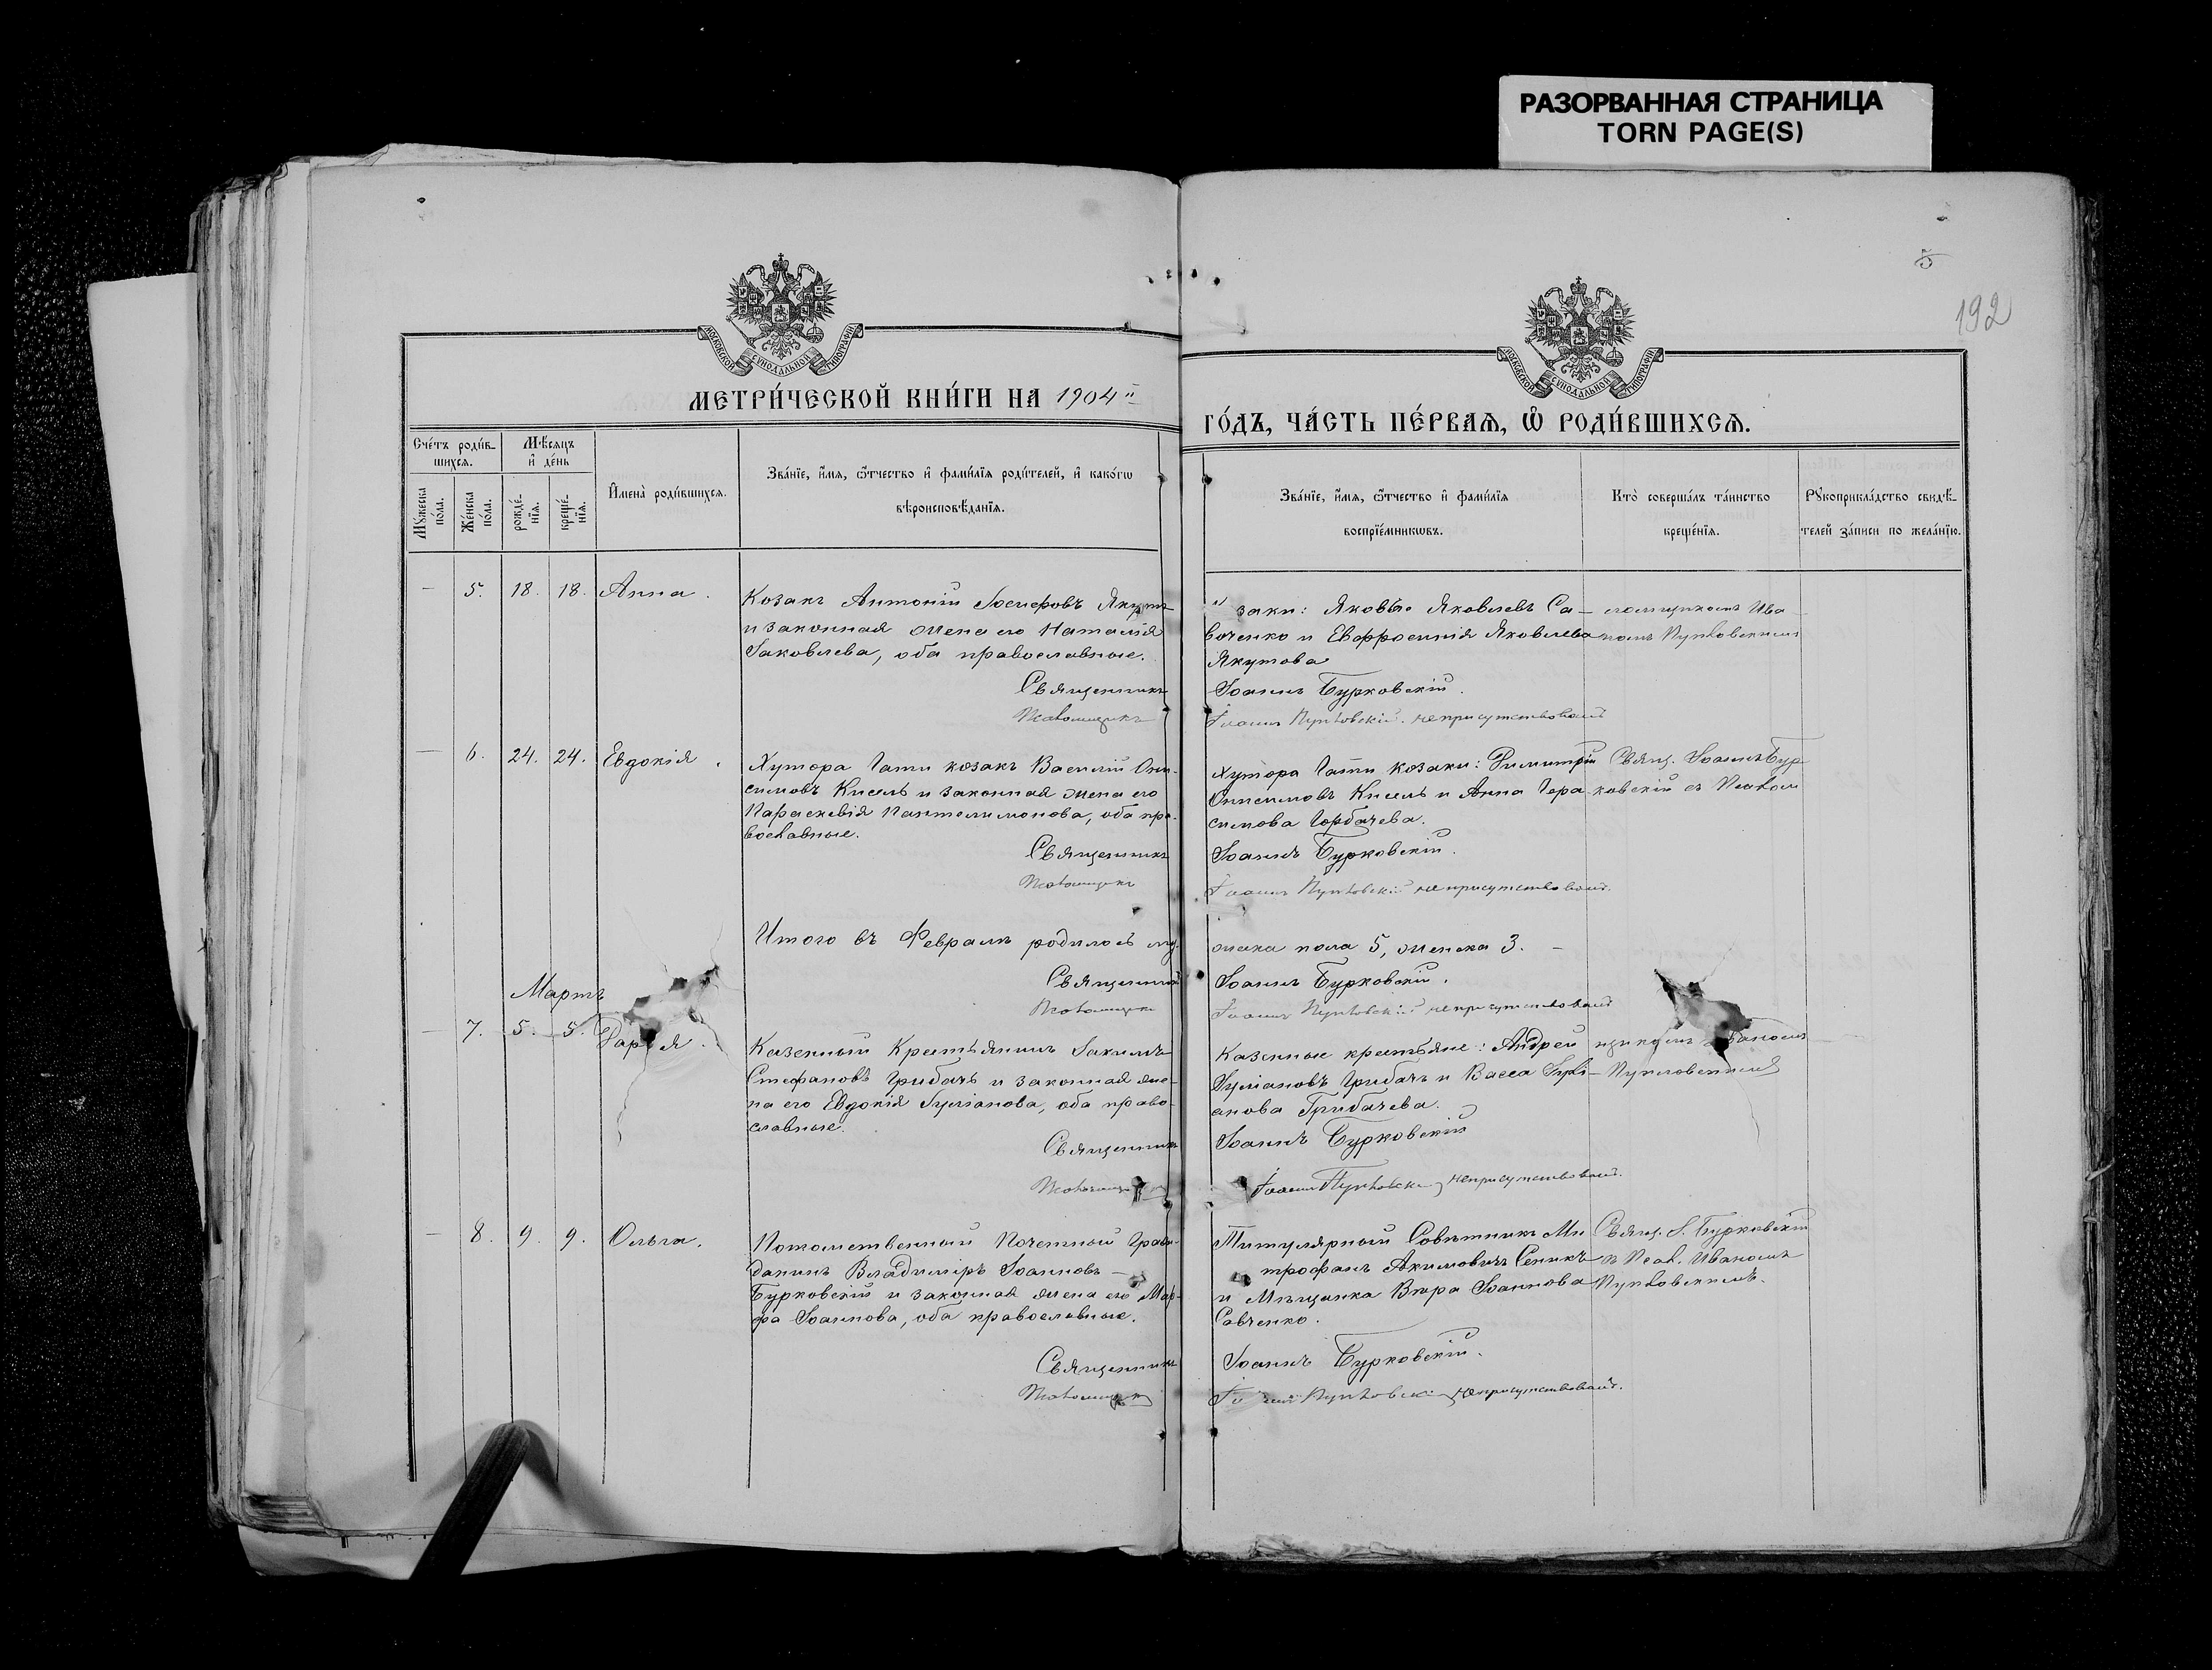 РАЗОРВАННАЯ СТРАНИЦА
TORN PAGE(S)
5
192
МОСКОВСКОЙ СУНОДАЛЬНОЙ ТИПОГРАФІИ
МОСКОВСКОЙ СУНОДАЛЬНОЙ ТИПОГРАФІИ
МЕТРИ́ЧЕСКОЙ КНИ́ГИ НА 1904й
ГО́ДЪ, ЧА́СТЬ ПЕ́РВАѦ, Ѡ҆ РОДИ́ВШИХСѦ.
Сче́тъ роди́в-
шихсѧ.
Мѣ́сѧцъ
и҆ де́нь
Мꙋ́жеска
по́ла.
Же́нска
по́ла.
рожде́-
нїѧ.
креще́-
нїѧ.
И҆мена̀ роди́вшихсѧ.
Зва́нїе, и҆́мѧ, ѻ҆́тчество и҆ фами́лїѧ роди́телей, и҆ како́гѡ
вѣроисповѣ́данїѧ.
Зва́нїе, и҆́мѧ, ѻ҆́тчество и҆ фами́лїѧ
воспрїе́мникѡвъ.
Кто̀ соверша́лъ та́инство
креще́нїѧ.
Рꙋкоприкла́дство свидѣ́-
телей за́писи по жела́нїю.
— 5. 18. 18. Анна.
Козакъ Антоній Іосифовъ Якутъ
и законная жена его Наталія
Іаковлева, оба православные.
Священникъ
Псаломщикъ
заки: Яковъ Яковлевъ Са-
вченко и Евфросинія Яковлева
Якутова
Іоаннъ Бурковскій.
Іоаннъ неприсутствовалъ
ломщикомъ Ива-
номъ
— 6. 24. 24. Евдокія.
Хутора Гати козакъ Василій Они-
симовъ Кисель и законная жена его
Параскевія Пантелимонова, оба пра-
вославные.
Священникъ
Псаломщикъ
Хутора Гати козаки: Димитрій
Онисимовъ Кисель и Анна Гера-
симова Горбачева.
Іоаннъ Бурковскій.
Іоаннъ неприсутствовалъ.
Свящ. Іоаннъ Бур-
ковскій съ Псалом
Итого въ Февралѣ родилось му-
Священникъ
Псаломщикъ
жеска пола 5, женска 3. —
Іоаннъ Бурковскій.
Іоаннъ неприсутствовалъ
Мартъ
— 7. 5. 5. Дарья.
Казенный Крестьянинъ Іакимъ
Стефановъ Грибачъ и законная же-
на его Евдокія Іуліанова, оба право-
славные.
Священникъ
Псаломщикъ
Казенные крестьяне: Андрей
Іуліановъ Грибачъ и Васса Іулі-
анова Грибачева.
Іоаннъ Бурковскій
Іоаннъ неприсутствовалъ.
щикомъ Иваномъ
— 8. 9. 9. Ольга.
Потомственный Почетный Граж-
данинъ Владиміръ Іоанновъ —
Бурковскій и законная жена его Мар-
фа Іоаннова, оба православные.
Священникъ
Псаломщикъ
Титулярный Совѣтникъ Ми
трофанъ Акимовичъ Сеникъ
и Мѣщанка Вѣра Іоаннова
Савченко.
Іоаннъ Бурковскій.
неприсутствовалъ.
Свящ. І. Бурковскій
съ Псал. Иваномъ